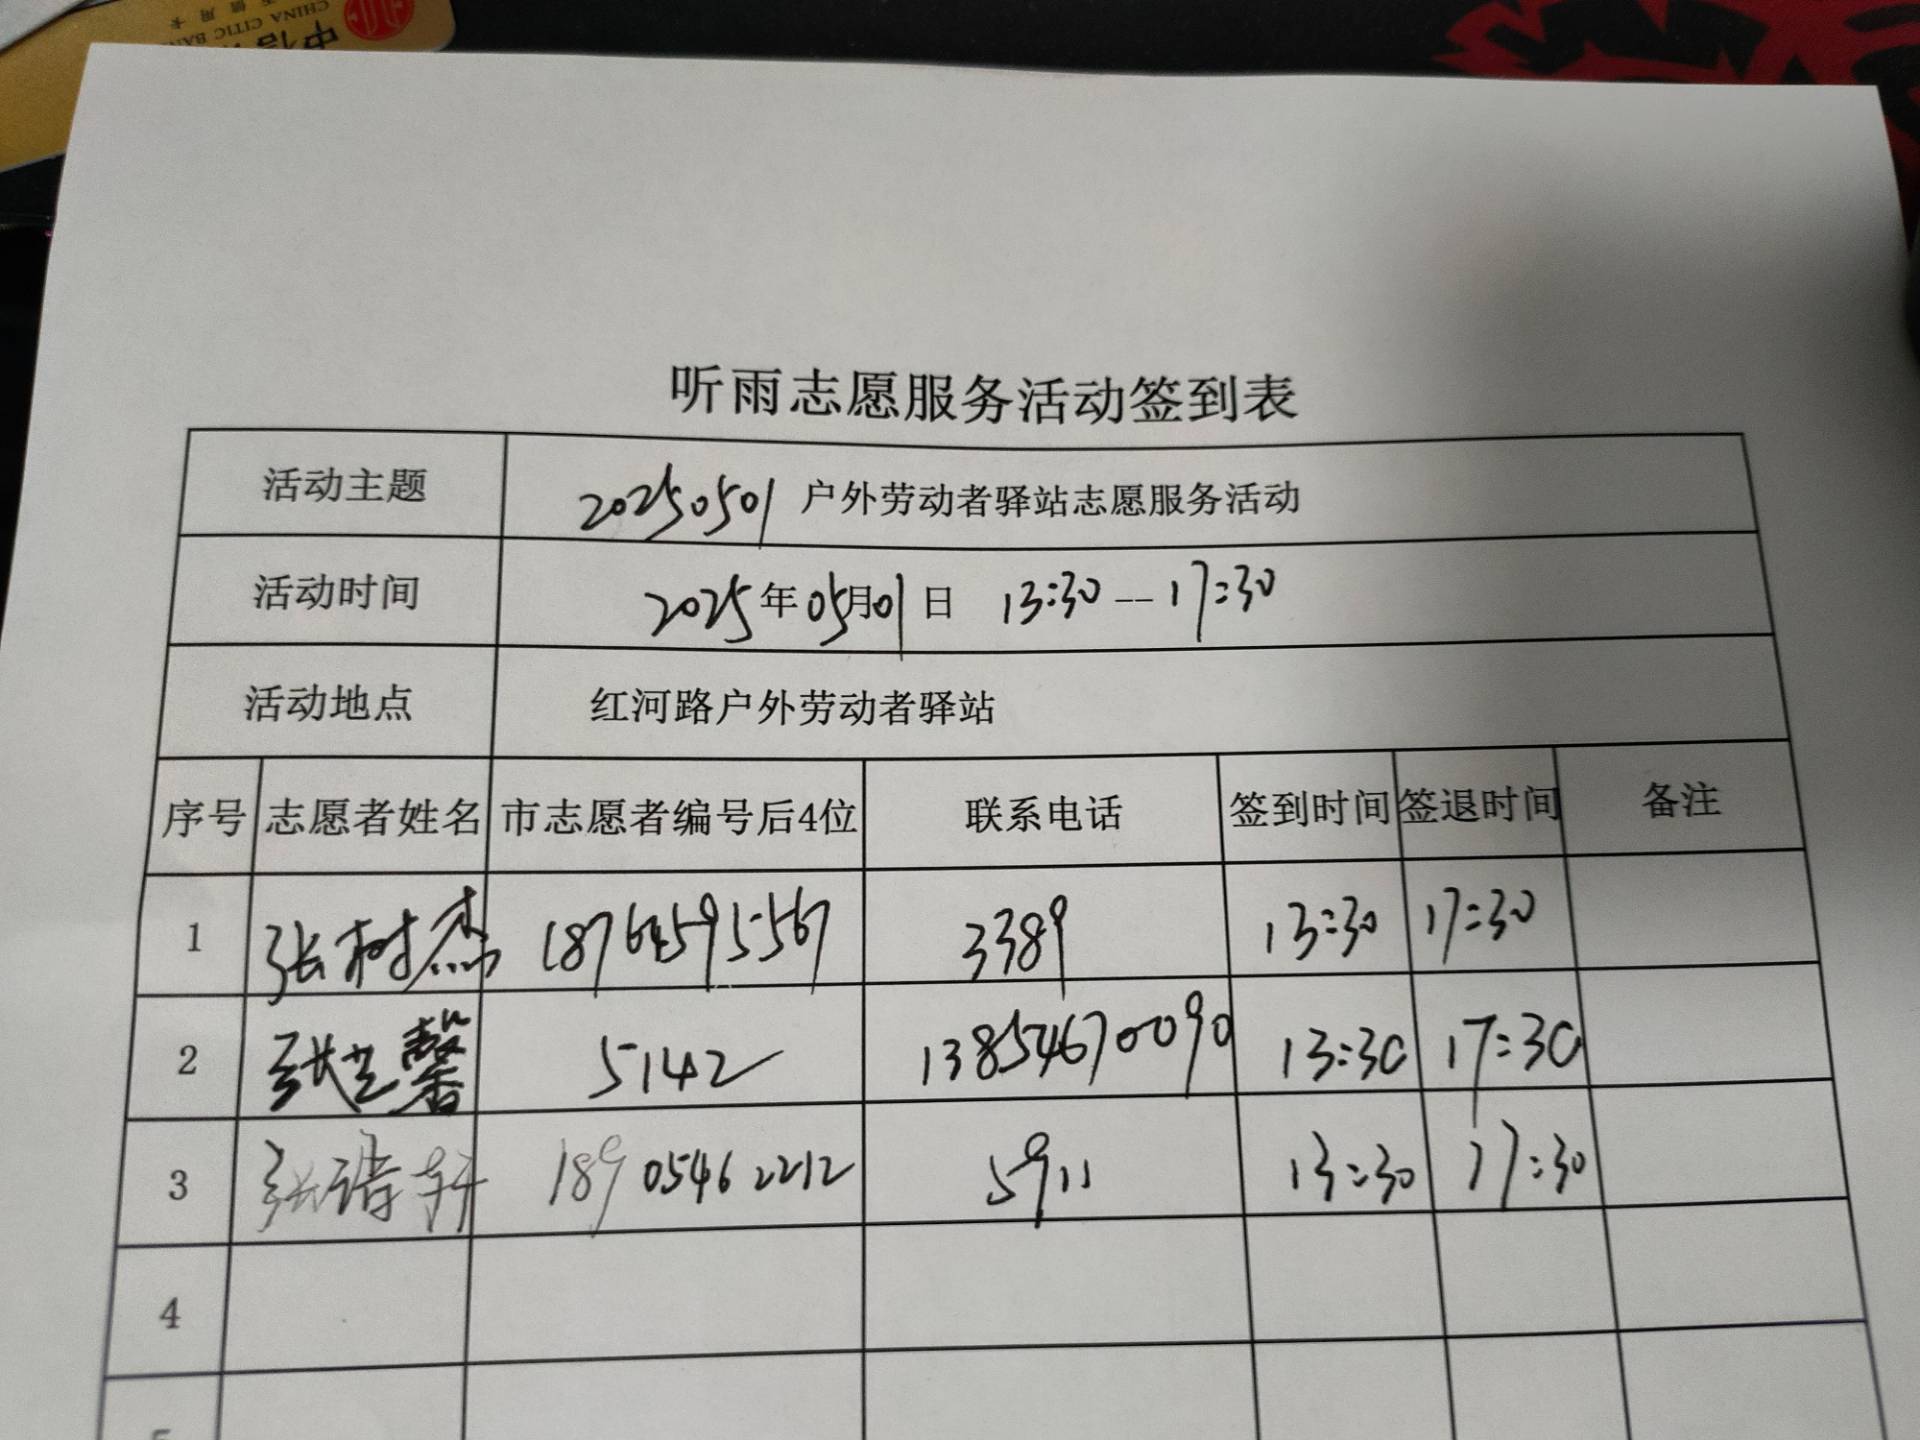 CHINA CITIC BAN
中信
听雨志愿服务活动签到表
活动主题 20250501 户外劳动者驿站志愿服务活动
活动时间 2025年05月01日 13:30--17:30
活动地点 红河路户外劳动者驿站
序号 志愿者姓名 市志愿者编号后4位 联系电话 签到时间 签退时间 备注
1 张树杰 18764595567 3389 13:30 17:30
2 张兰馨 5142 13854670090 13:30 17:30
3 张诗轩 18905462212 5911 13:30 17:30
4